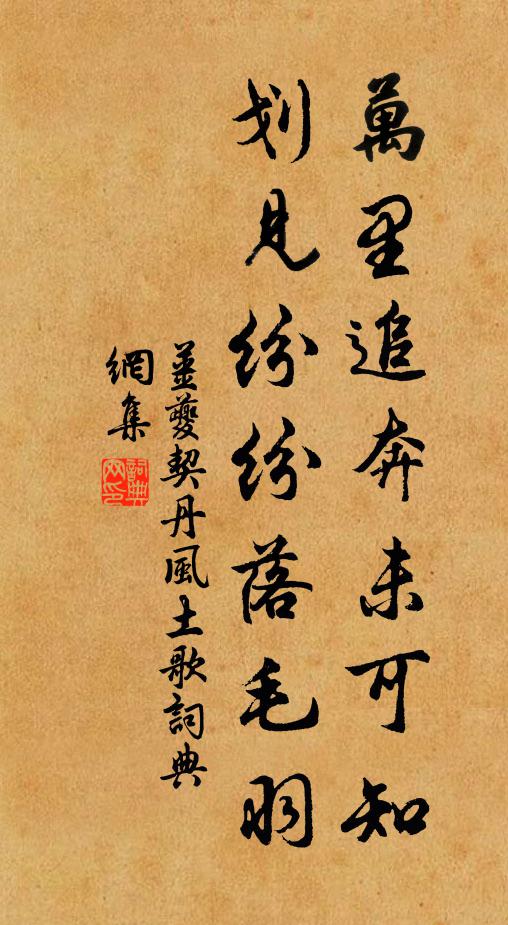 萬里追奔未可知
划見紛紛落毛羽
姜夔契丹風土歌詞典
網集
詞典
網印